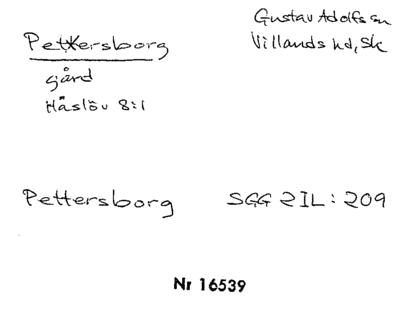 Pettersborg
Gustav Adolfs sn
Villands hd, Sk
gård
Håslöv 8:1
Pettersborg
SGG 2 IL: 209
Nr 16539